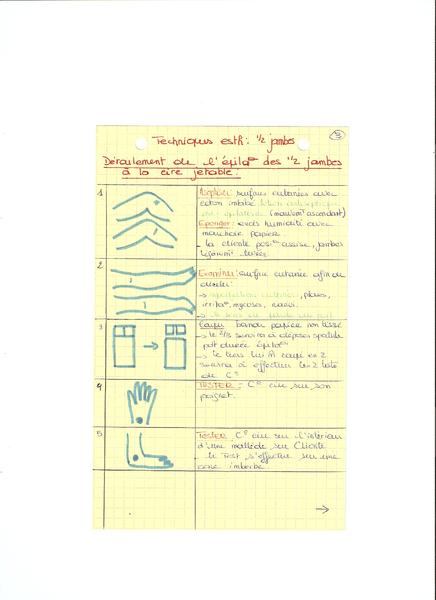 5
Techniques esth: 1/2 jambes
Déroulement de l'épila° des 1/2 jambes
à la cire jetable:
1
surfaces cutanées avec
coton imbibé lotion antiseptique
(mouvmt ascendant)
Eponger: excès humidité avec
mouchoir papier.
- la cliente posit° assise, jambes
légèrmt
2
Examiner: surface cutanée afin de
→ plaies,
irrita°, mycoses,
→ le sens de du poil
3
Coupe bande papier non tissé
→ le 2/3 servira à déposer spatule
pdt durée épila°
→ le tiers coupé en 2
servira à effectuer les 2 tests
de C°
4
TESTER: C° cire sur son
poignet.
5
TESTER C° cire sur l'intérieur
d'une malléole sur Cliente
- le Test s'effectue sur une
zone imberbe
→